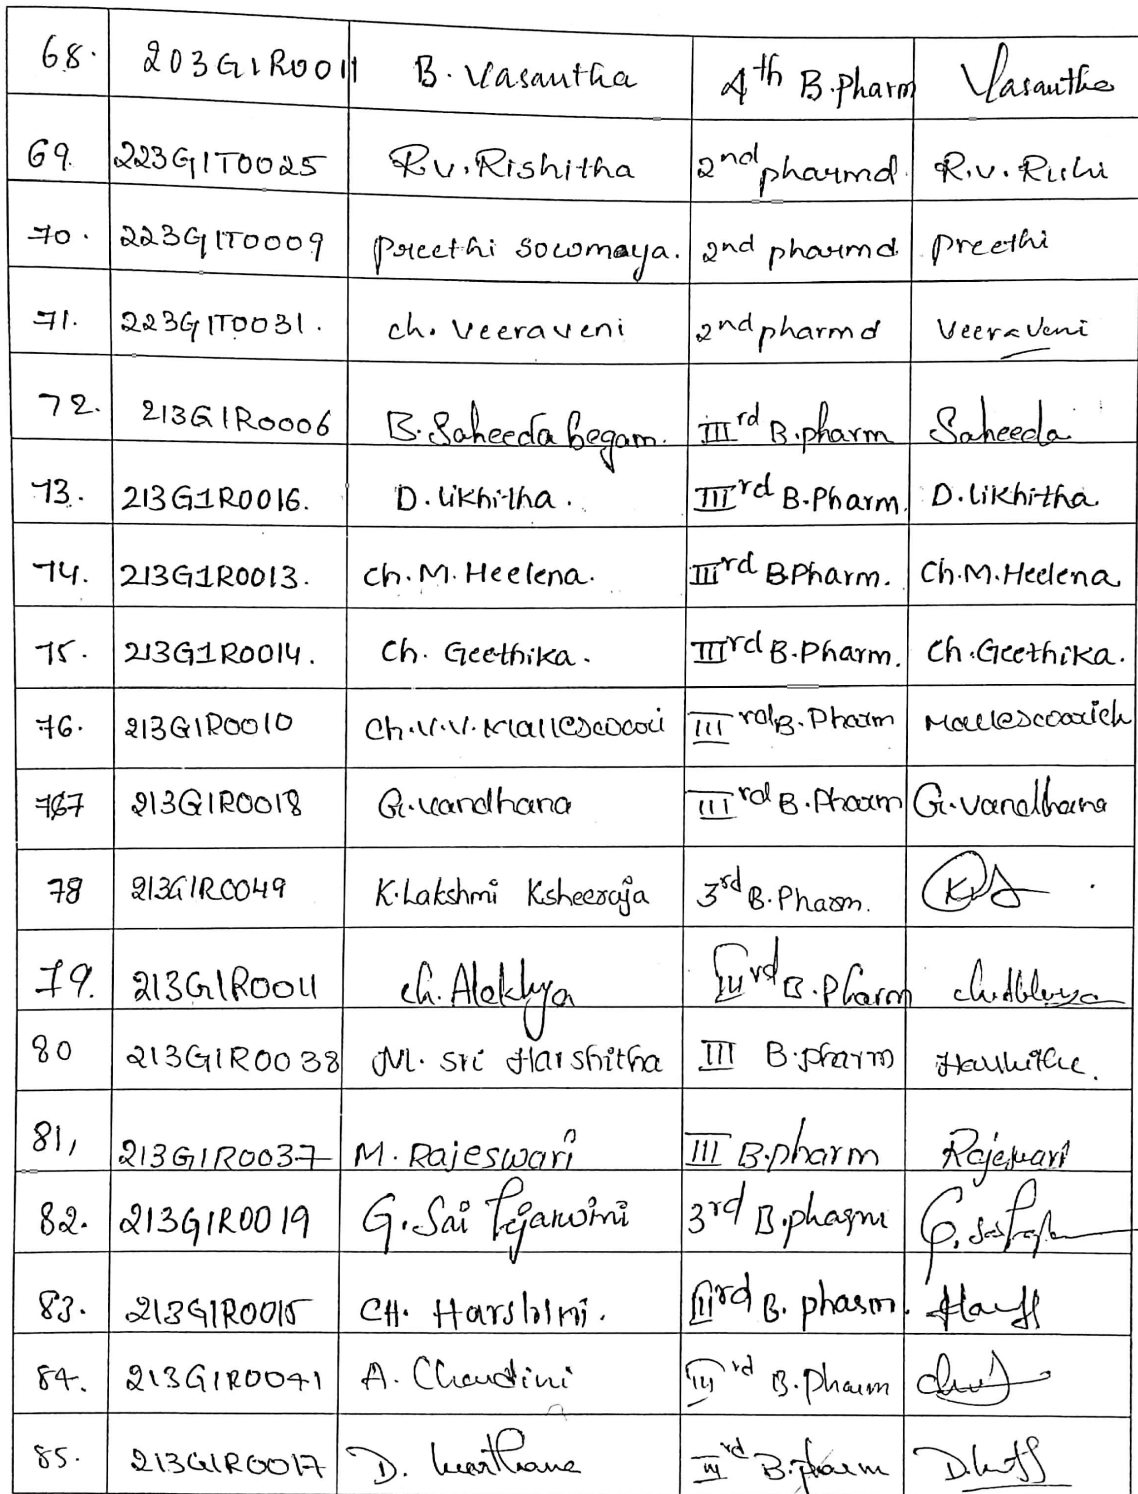 68. 203G1R0011 B. Vasantha 4th B.pharm Vasantha
69. 223G1T0025 R.v.Rishitha 2nd pharmd. R.v.Rishi
70. 223G1T0009 preethi sowmaya. 2nd pharmd preethi
71. 223G1T0031. ch. veeraveni 2nd pharmd veeraveni
72. 213G1R0006 B.Saheeda begam. IIIrd B.pharm Saheeda
73. 213G1R0016. D.likhitha. IIIrd B.Pharm. D.likhitha
74. 213G1R0013. ch.M.Heelena. IIIrd B.Pharm. Ch.M.Heelena
75. 213G1R0014. Ch. Geethika. IIIrd B.Pharm. Ch.Geethika.
76. 213G1R0010 Ch.V.V. IIIrd B.Pharm
77 213G1R0018 G.vandhana IIIrd B.Pharm G.vandhana
78 213G1R0049 K.Lakshmi Ksheeraja 3rd B.Pharm.
79. 213G1R0011 ch.Alekhya IIIrd B.pharm
80 213G1R0038 M. sri Harshitha III B.pharm Harshitha.
81, 213G1R0037 M. Rajeswari III B.pharm Rajeswari
82. 213G1R0019 G.Sai Tejaswini 3rd B.pharm
83. 213G1R0015 CH. Harshini. IIIrd B. pharm.
84. 213G1R0041 A. Chandini IIIrd B.Pharm
85. 213G1R0017 D. IIIrd B.pharm